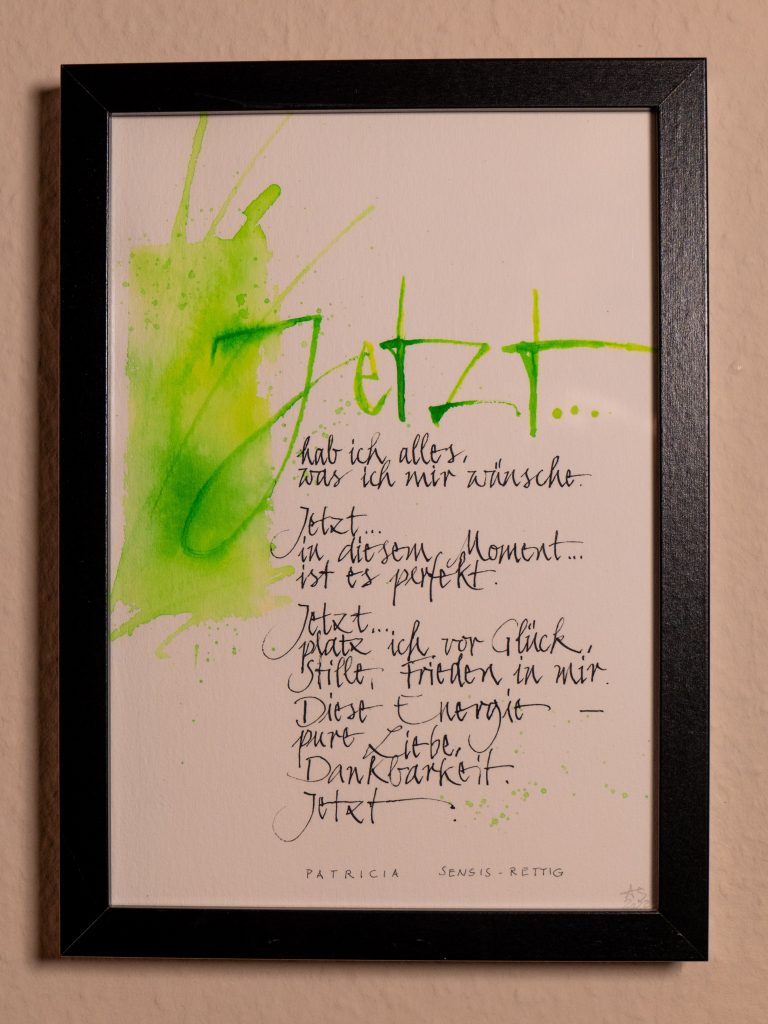 Jetzt...
hab ich alles,
was ich mir wünsche.
Jetzt...
in diesem Moment...
ist es perfekt.
Jetzt...
platz ich vor Glück,
Stille, Frieden in mir.
Diese Energie –
pure Liebe,
Dankbarkeit.
Jetzt.
PATRICIA SENSIS-RETTIG